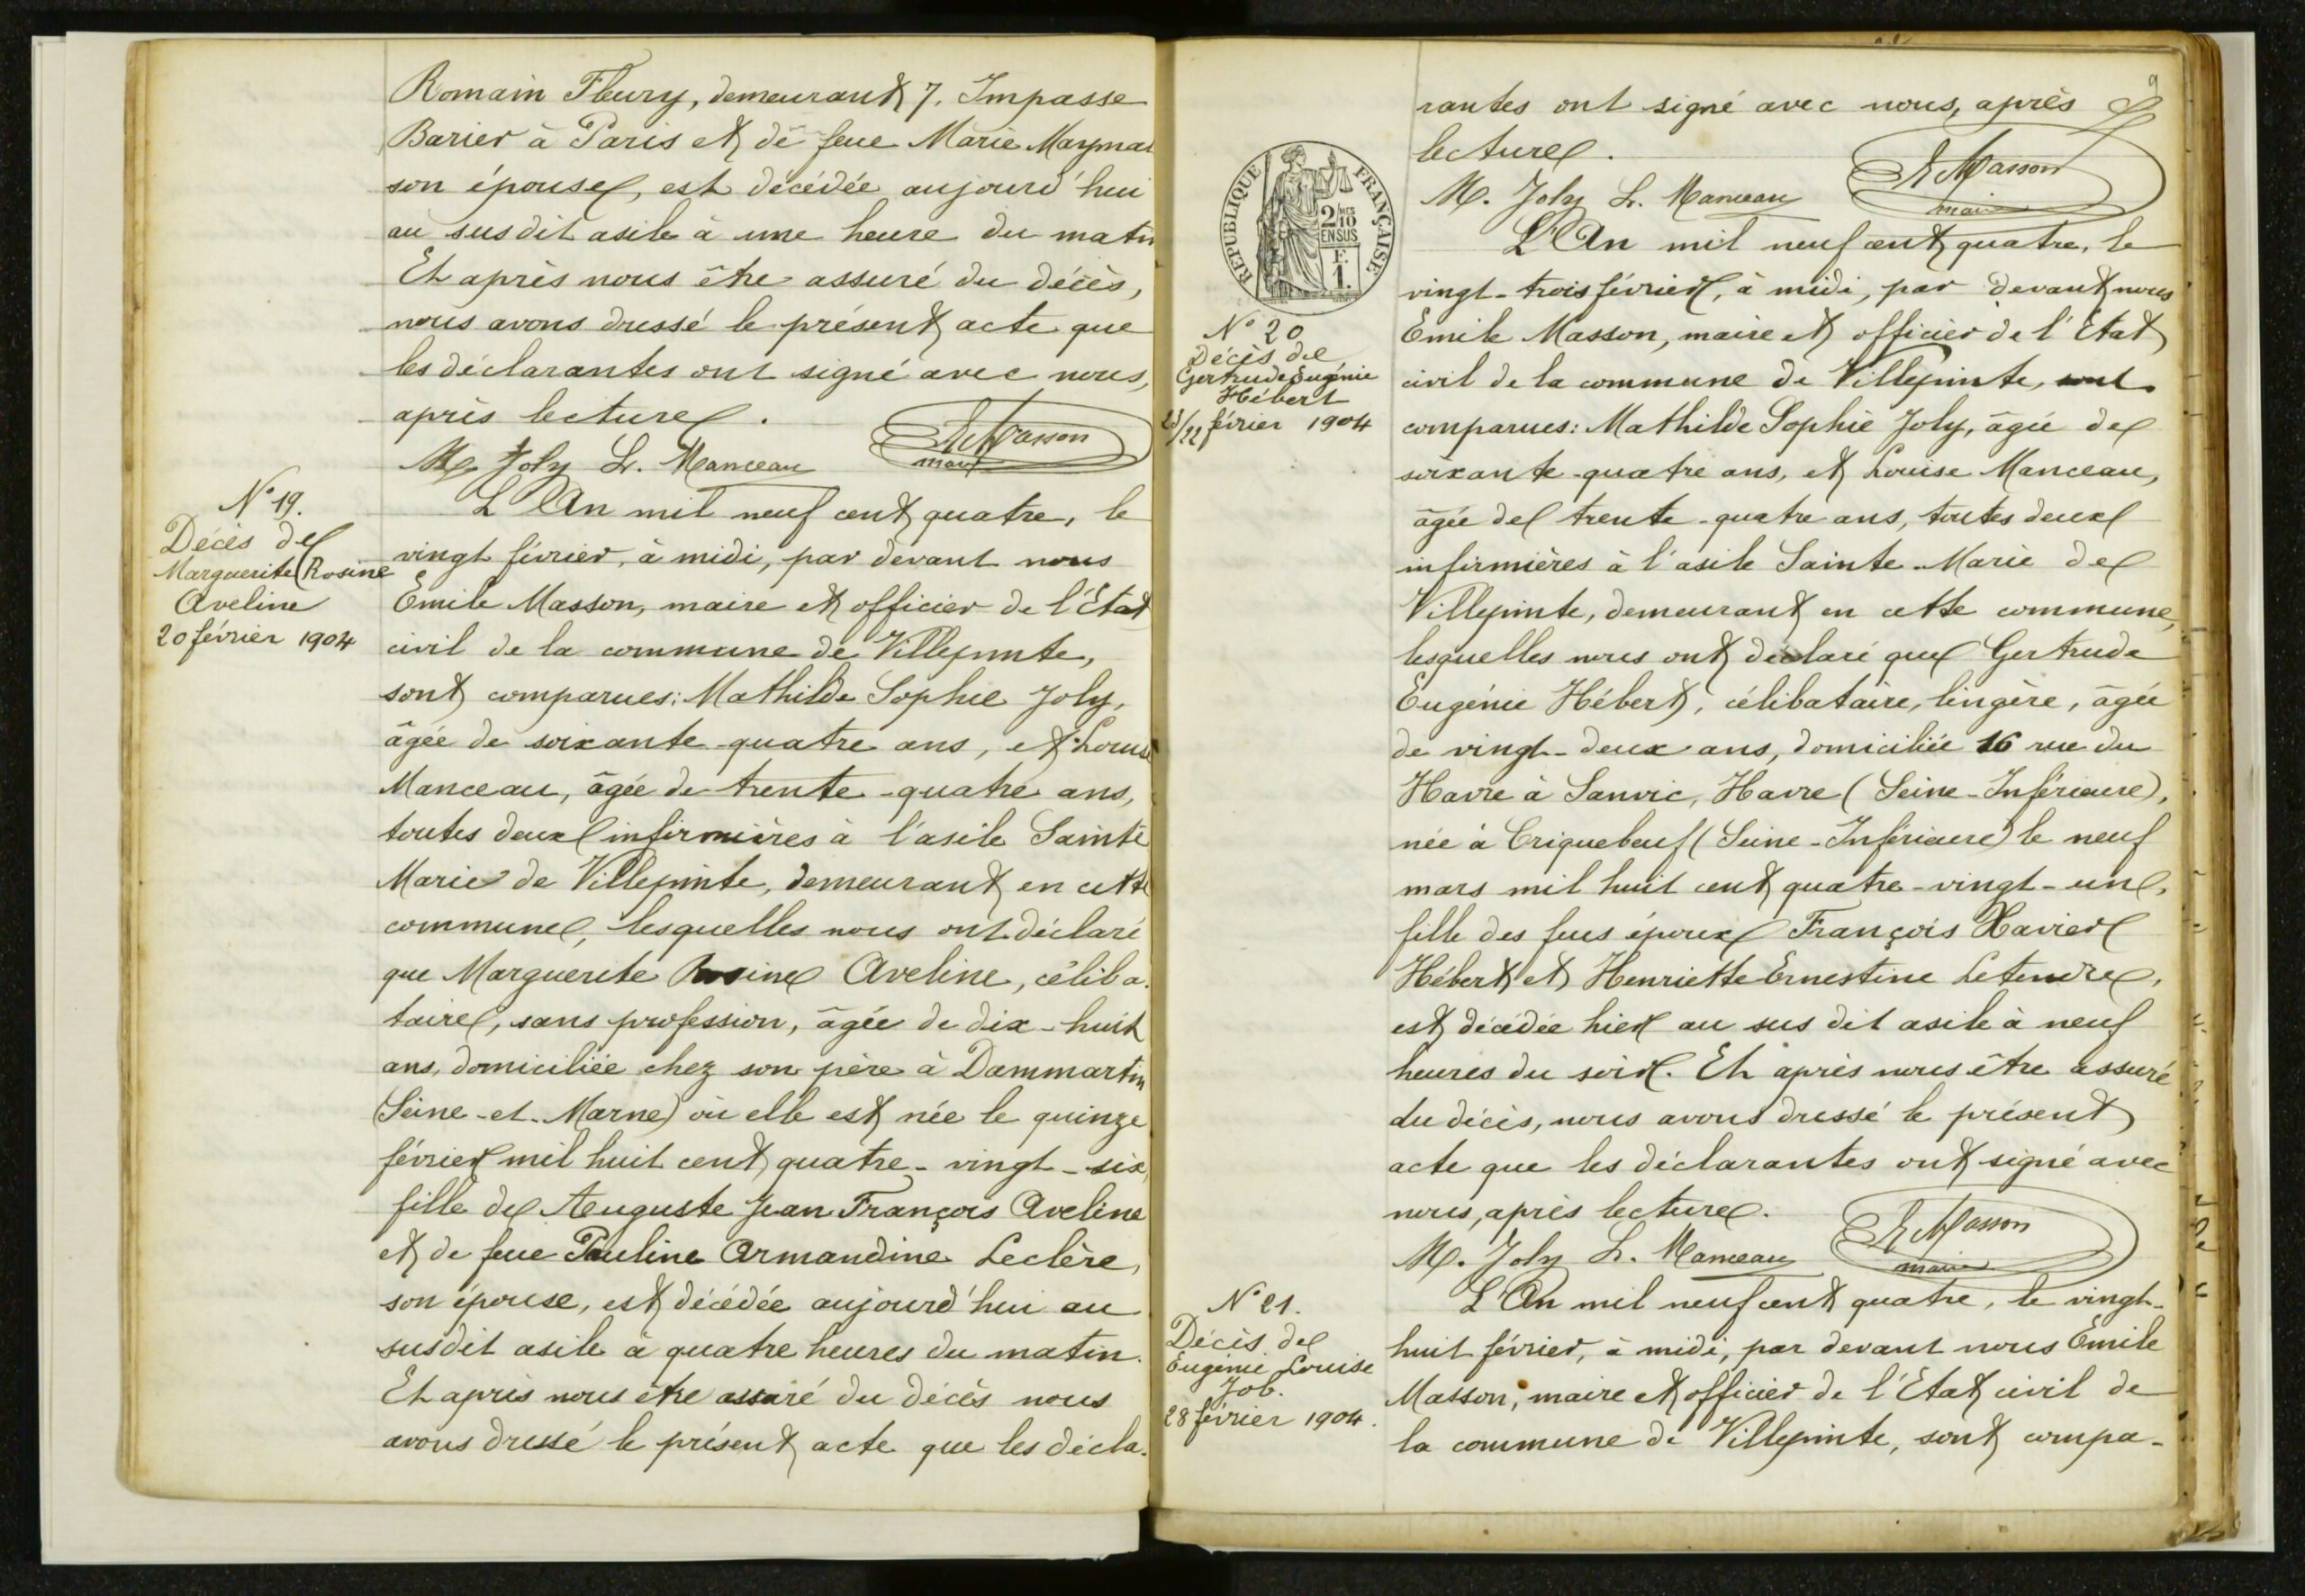 Romain Fleury, demeurant 7. Impasse
Barier à Paris et de feue Marie Maymat
son épouse, est décédée aujourd'hui
au susdit asile à une heure du matin
Et après nous être assuré du décès,
nous avons dressé le présent acte que
les déclarantes ont signé avec nous,
après lecture.
M. Joly L. Manceau E. Masson
maire
N° 19.
Décès de
Marguerite Rosine
Aveline
20 février 1904
L'An mil neuf cent quatre, le
vingt février, à midi, par devant nous
Emile Masson, maire et officier de l'Etat
civil de la commune de Villepinte,
sont comparues: Mathilde Sophie Joly,
âgée de soixante-quatre ans, et Louise
Manceau, âgée de trente-quatre ans,
toutes deux infirmières à l'asile Sainte
Marie de Villepinte, demeurant en cette
commune, lesquelles nous ont déclaré
que Marguerite Rosine Aveline, céliba-
taire, sans profession, âgée de dix-huit
ans, domiciliée chez son père à Dammartin
(Seine-et-Marne) où elle est née le quinze
février mil huit cent quatre-vingt-six,
fille de Auguste Jean François Aveline
et de feue Pauline Armandine Leclère,
son épouse, est décédée aujourd'hui au
susdit asile à quatre heures du matin.
Et après nous être assuré du décès nous
avons dressé le présent acte que les décla-
9
rantes ont signé avec nous, après
lecture.
M. Joly L. Manceau E. Masson
maire
RÉPUBLIQUE FRANÇAISE
2/10
EN SUS
F.
1.
N° 20
Décès de
Gertrude Eugénie
Hébert
23/22 février 1904
L'An mil neuf cent quatre, le
vingt-trois février, à midi, par devant nous
Emile Masson, maire et officier de l'Etat
civil de la commune de Villepinte, sont
comparues: Mathilde Sophie Joly, âgée de
soixante-quatre ans, et Louise Manceau,
âgée de trente-quatre ans, toutes deux
infirmières à l'asile Sainte-Marie de
Villepinte, demeurant en cette commune,
lesquelles nous ont déclaré que Gertrude
Eugénie Hébert, célibataire, lingère, âgée
de vingt-deux ans, domiciliée 16 rue du
Havre à Sanvic, Havre (Seine-Inférieure),
née à Criquebeuf (Seine-Inférieure) le neuf
mars mil huit cent quatre-vingt-un,
fille des feus époux François Xavier
Hébert et Henriette Ernestine Letendre,
est décédée hier au sus dit asile à neuf
heures du soir. Et après nous être assuré
du décès, nous avons dressé le présent
acte que les déclarantes ont signé avec
nous, après lecture.
M. Joly L. Manceau E. Masson
maire
N° 21.
Décès de
Eugénie Louise
Job.
28 février 1904.
L'An mil neuf cent quatre, le vingt-
huit février, à midi, par devant nous Emile
Masson, maire et officier de l'Etat civil de
la commune de Villepinte, sont compa-